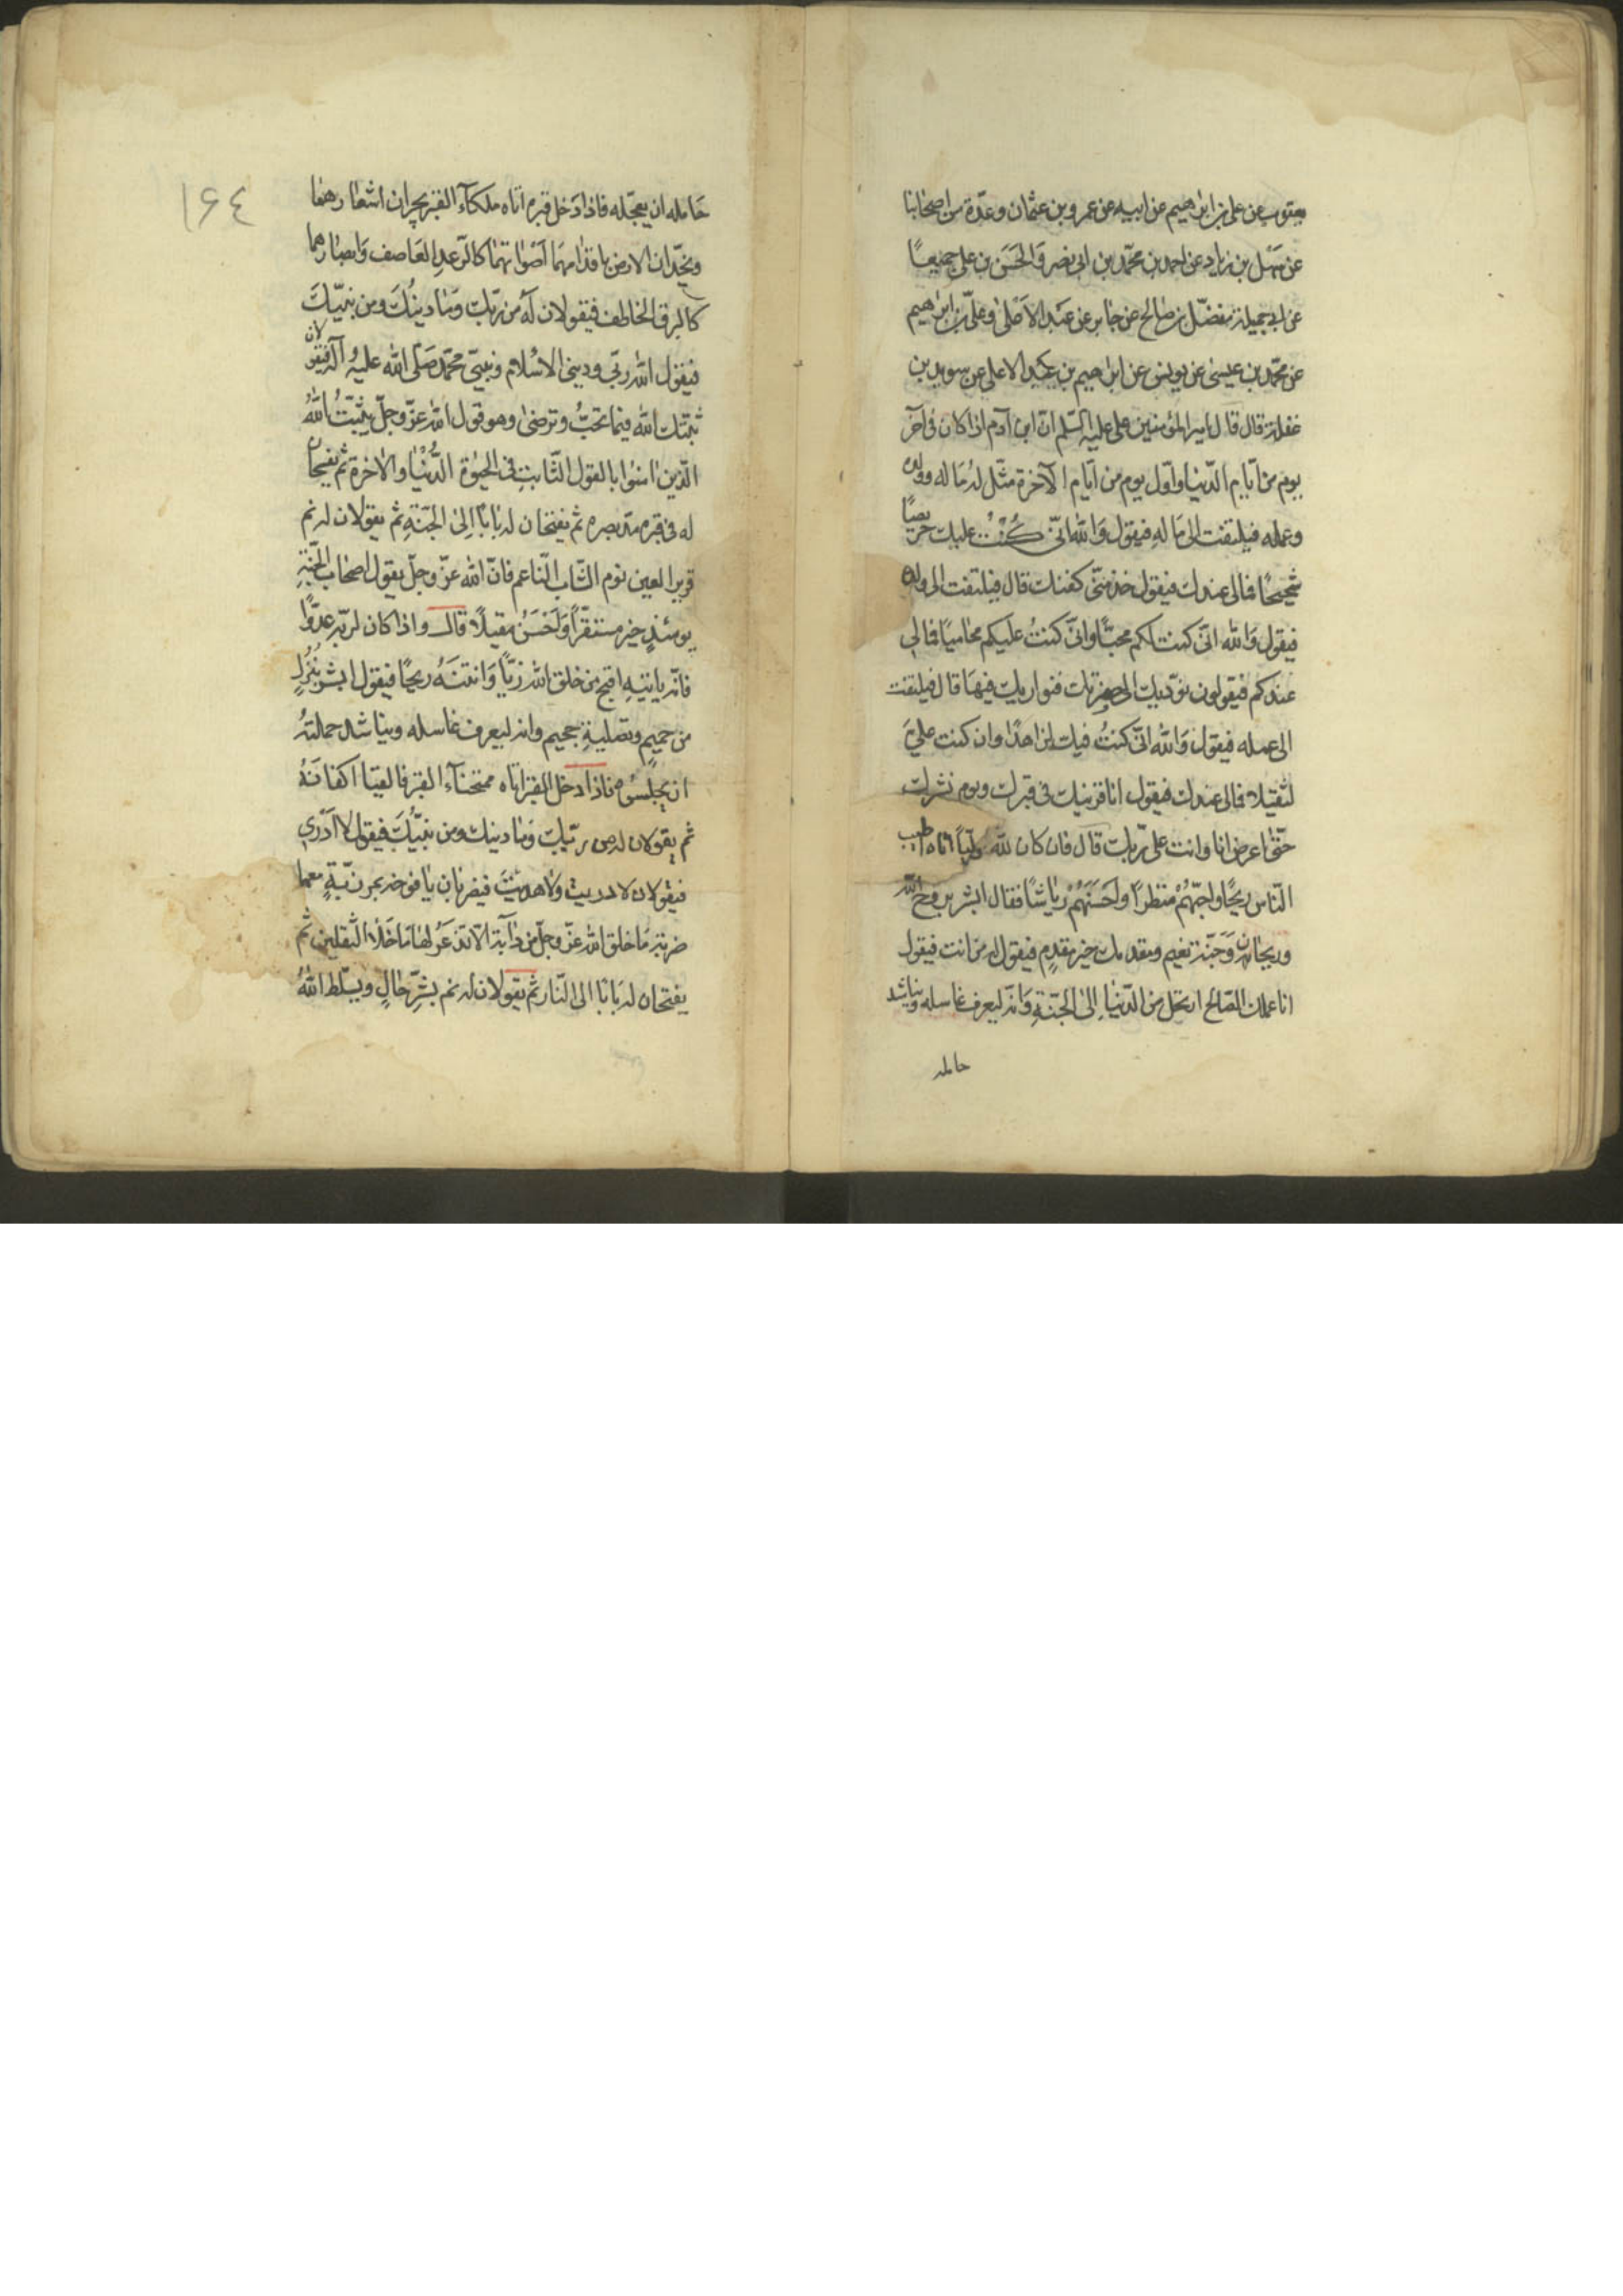 يعقوب عن علي بن ابراهيم عن ابيه عن عمرو بن عثمان وعدّة من اصحابنا
عن سهل بن زياد عن احمد بن محمّد بن ابي نصر وَالحَسَن بن علي جميعًا
عن ابي جميلة مفضّل بن صالح عن جابر عن عبد الاعلى وعليّ بن ابراهيم
عن محمّد بن عيسى عن يونس عن ابراهيم بن عبد الاعلى عن سويد بن
غفلة قال قال امير المؤمنين علي عليه السّلم انّ ابن آدم اذا كان في آخر
يوم من ايّام الدّنيا واوّل يوم من ايّام الآخرة مثّل له مَا له وولده
وعمله فيلتفت الى مَا لهِ فيقول وَاللهِ انّي كُنْتُ عليك حريصًا
شحيحًا فمالي عندك فيقول خذ منّي كفنك قال فيلتفت الى ولده
فيقول وَالله انّي كنت لكم محبًّا وانّي كنتُ عليكم محاميًا فمالي
عندكم فيقولون نؤدّيك الى حفرتك فنواريك فيهَا قال فيلتفت
الى عمله فيقول وَالله انّي كنتُ فيك لزاهدًا وان كنت عليَّ
لثقيلا فمالي عندك فيقول انا قرينك في قبرك ويوم نشرك
حتّى اعرض انا وانت على ربّك قال فان كان لله وليّاً اتاه اطيب
النّاس ريحًا واحبّهُمْ منظراً واَحسَنهُمْ رياشًا فقال ابشر بروح الله
وريحان وَجَنّة نعيم ومقدمك خير مقدمٍ فيقول له من انت فيقول
انا عملك الصّالح ارتحل من الدّنيا اِلى الجنّةِ وَانّه ليعرف غاسله ويناشد
حامله
١٦٤
حَامله ان يعجّله فاذا دَخل قبره اتاه ملكآء القبر يجران اشعارهما
ويخدّان الارض باقدامهمَا اَصْواتهمَا كالرّعدِ العَاصف وَابصارهما
كالبرق الخاطف فيقولان لَهُ من ربّك وَمَا دينُكَ ومن نبيّكَ
فيقول الله ربّي وديني الاسْلام ونبيّي محمّد صَلّى الله عليهِ آلهِ فيقولان
ثبّتك الله فيما تحبُّ وترضى وهو قول الله عزّ وجلّ يثبّتُ اللهُ
الّذين امنوا بالقول الثّابتِ في الحيوة الدُّنْيا والاخرة ثم يفسحان
له في قبره مدّ بصره ثم يفتحان له بابًا اِلى الجنّةِ ثم يقولان له نم
قرير العين نوم الشّاب النّاعم فانّ الله عزّ وجلّ يقول اصحاب الجنّةِ
يومئذٍ خير مستقرّاً وَاَحْسَنُ مقيلًا قال واذا كان لربّه عدوًّا
فانّه ياتيهِ اقبح من خلق الله زيّاً وَانتنَهُ ريحًا فيقول ابشر بنُزُلٍ
من حميمٍ وتصليةِ جحيم وانه ليعرف غاسله ويناشد حملتهُ
ان يحبِسُوه فاذا ادخل القبر اتاه ممتحنآء القبر فالقيا اكفانَهُ
ثم يقولان له من ربّك وَمَا دينك ومن نبيُّكَ فيقول لا اَدْري
فيقولان لا دريت ولا هديتَ فيضربان يافوخه بمرزبّةٍ معهما
ضربة مَا خلق الله عزّ وجلّ من دآبّة الّا تذعَرُ لهَا مَا خَلا الثّقلين ثم
يفتحان له بَابًا الى النّار ثم يقولان له نم بشرِّ حَالٍ ويسلّط اللهُ